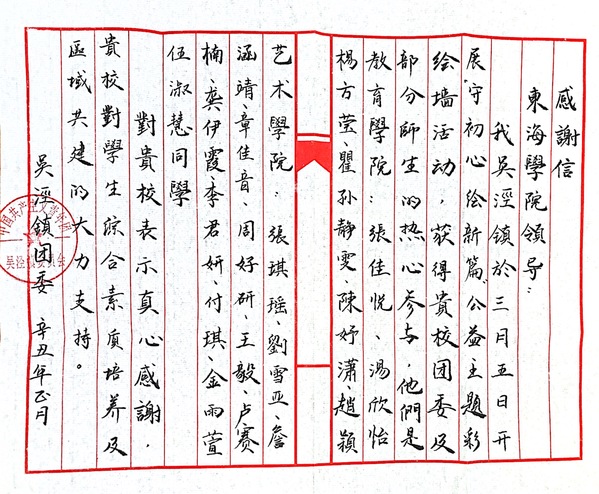 感謝信
東海學院领导：
我吴涇镇於三月五日开
展“守初心绘新篇”公益主题彩
绘墙活动，获得貴校团委及
部分師生的热心参与，他們是
教育學院：張佳悦、湯欣怡
楊方莹、瞿孙静雯、陳妤瀟、趙颖
艺术學院：張琪瑶、劉雪亚、詹
涵靖、章佳音、周好研、王毅、卢赛
楠、龚伊霞、李君妍、付琪、金雨萱
伍淑慧同學
對貴校表示真心感謝，
貴校對學生综合素质培养及
區域共建的大力支持。
吴涇镇团委 辛丑年正月
吴泾镇委员会